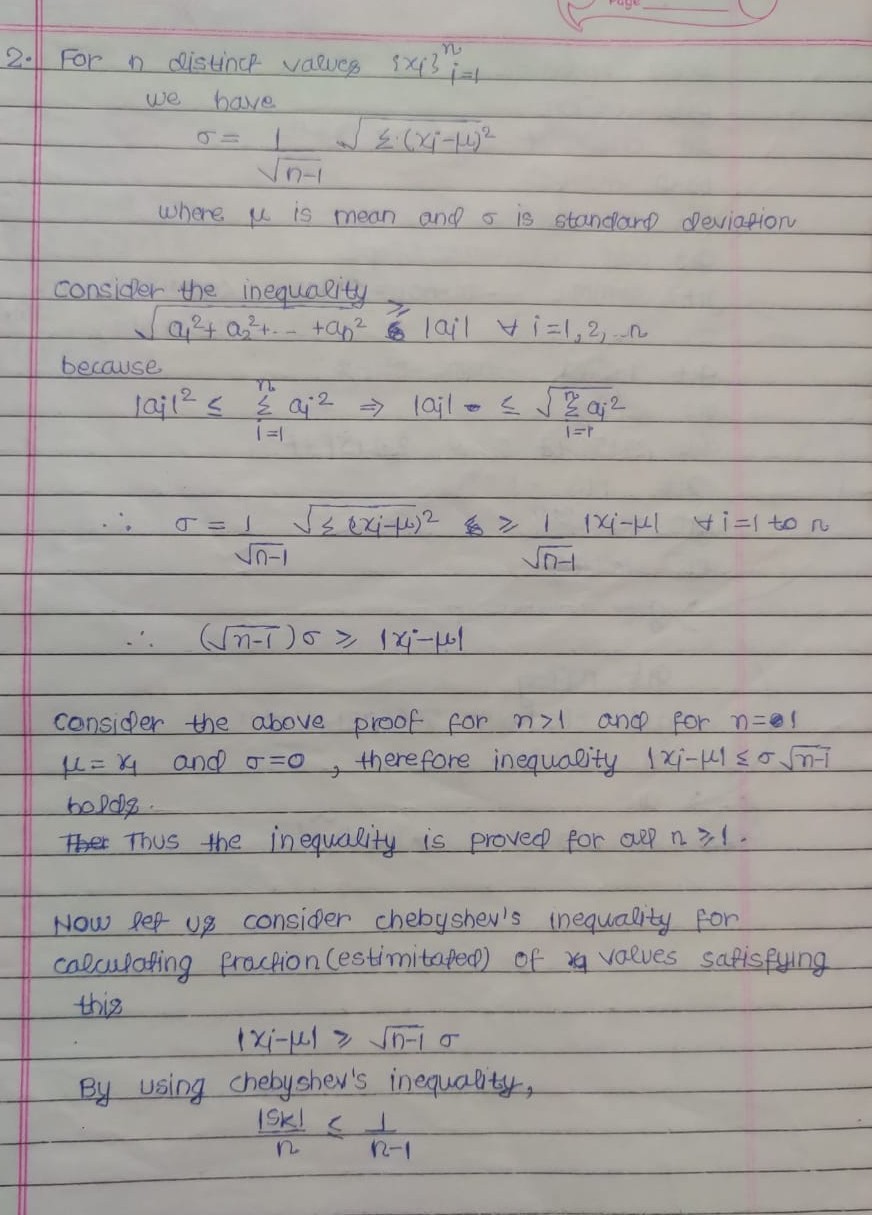 Page
2. For n distinct values {xi}ⁿi=1
we have
σ = 1/√(n-1) √Σ(xi-μ)²
where μ is mean and σ is standard deviation
consider the inequality
√(a₁² + a₂² + ... + an²) ≥ |ai| ∀ i=1,2,...n
because
|ai|² ≤ Σⁿi=1 ai² ⇒ |ai| ≤ √(Σⁿi=1 ai²)
∴ σ = 1/√(n-1) √Σ(xi-μ)² ≥ 1/√(n-1) |xi-μ| ∀ i=1 to n
∴ (√(n-1))σ ≥ |xi-μ|
consider the above proof for n>1 and for n=1
μ = x₁ and σ=0, therefore inequality |xi-μ| ≤ σ√(n-1)
holds.
Thus the inequality is proved for all n ≥ 1.
Now let us consider chebyshev's inequality for
calculating fraction (estimitated) of xi values satisfying
this
|xi-μ| ≥ √(n-1) σ
By using chebyshev's inequality,
|Sk|/n ≤ 1/(n-1)